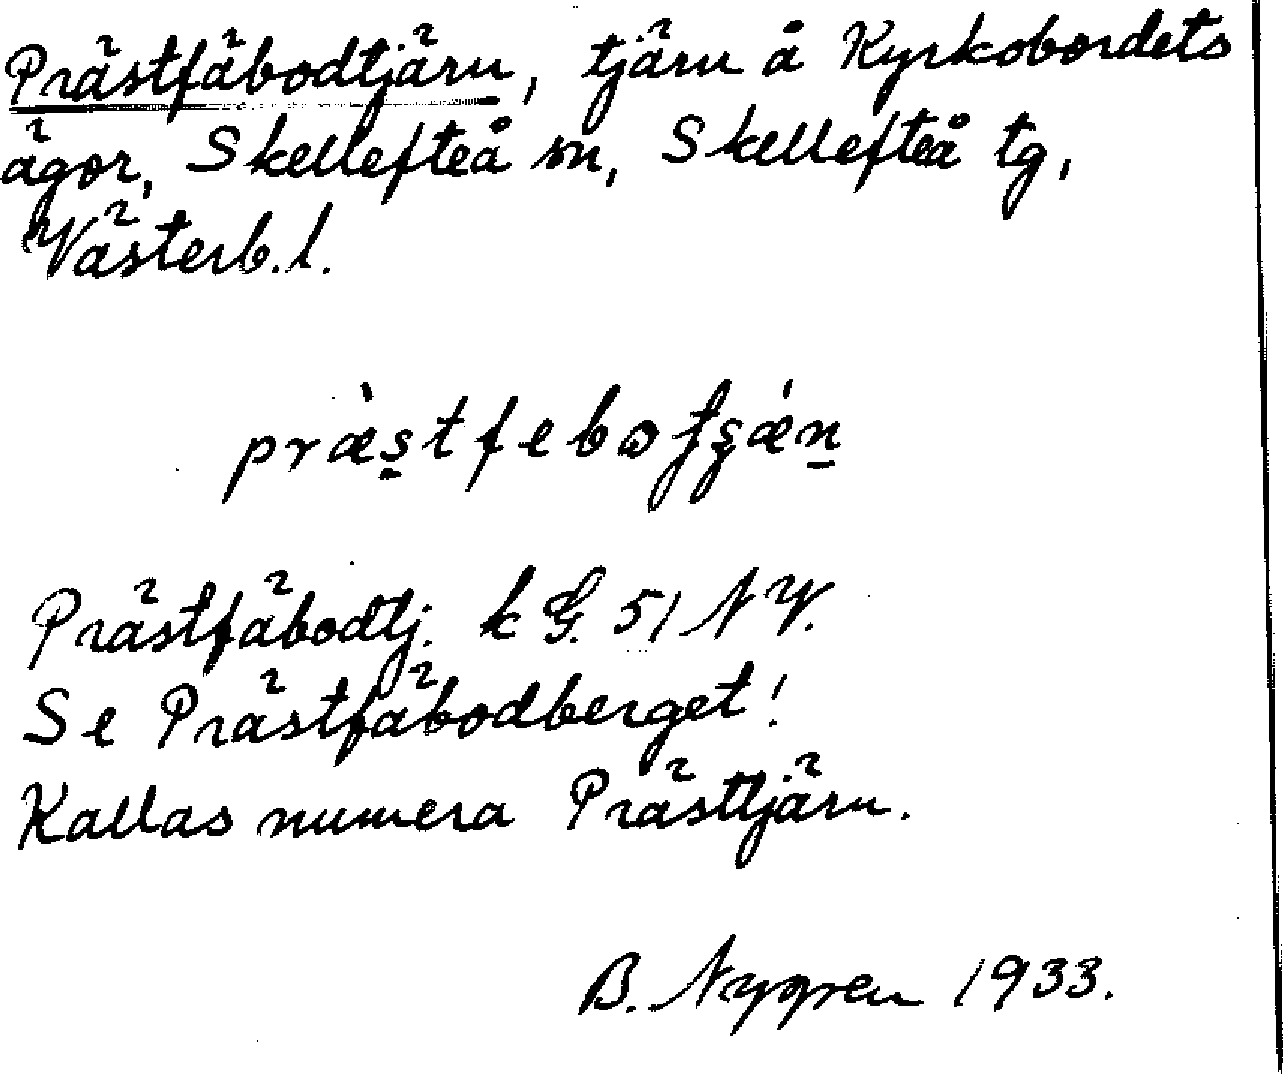 Prästfäbodtjärn, tjärn å Kyrkobordets
ägor, Skellefteå sn, Skellefteå tg,
Västerb. l.
præ̀stfeboʈʂǽn
Prästfäbodtj. k G. 51 NV.
Se Prästfäbodberget!
Kallas numera Prästtjärn.
B. Nygren 1933.